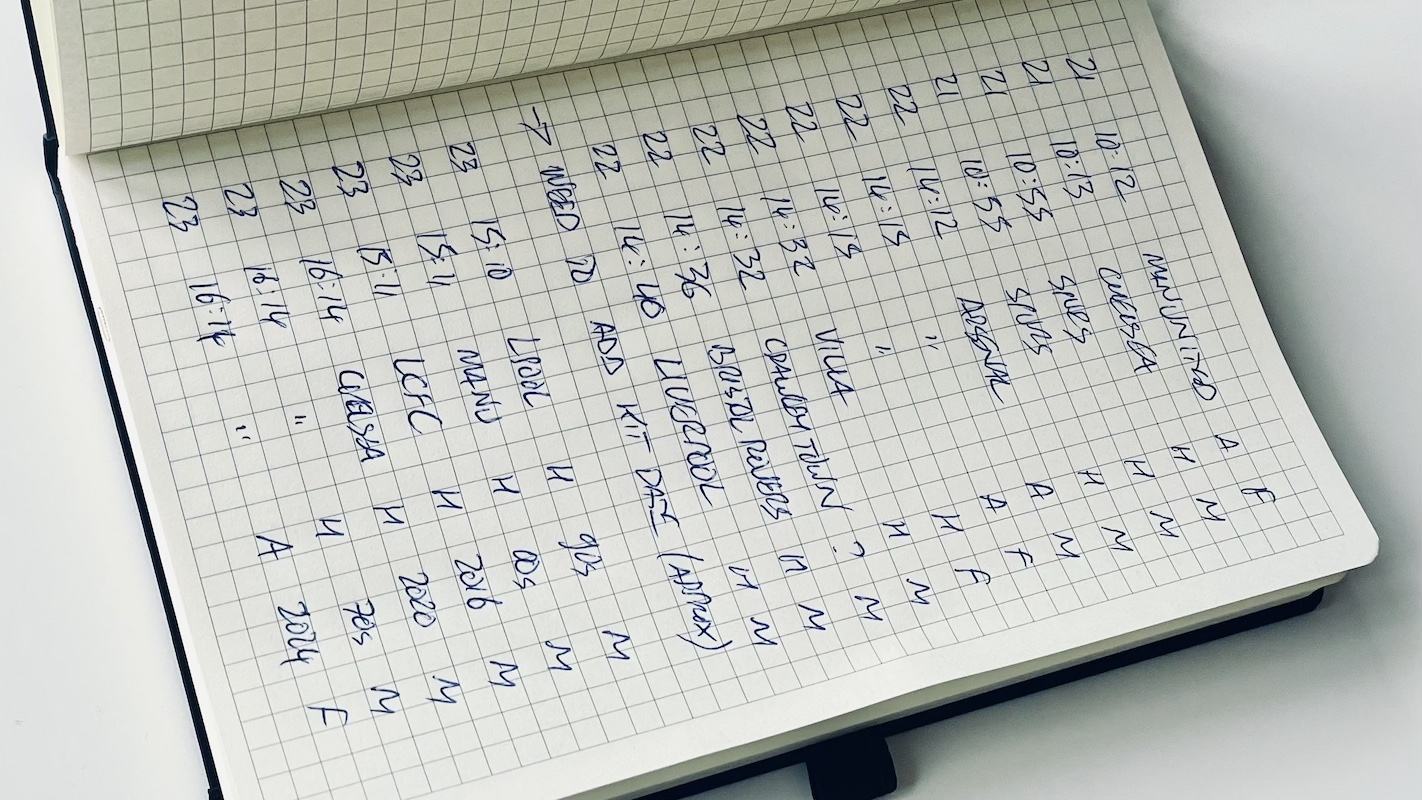 21 10:12 MAN UNITED A F
21 10:13 CHELSEA H M
21 10:55 SPURS H M
21 10:55 SPURS H M
22 14:12 ARSENAL A M
22 14:15 " A F
22 14:15 " H F
22 14:32 VILLA H M
22 14:32 CRAWLEY TOWN ? M
22 14:36 BRISTOL ROVERS H M
22 14:40 LIVERPOOL H M
→ NEED TO ADD KIT DATE (APPROX)
23 15:10 LPOOL H 90s M
23 15:11 MANU H 00s M
23 15:11 LCFC H 2016 M
23 16:14 CHELSEA H 2020 M
23 16:14 " H 70s M
23 16:14 " A 2024 F